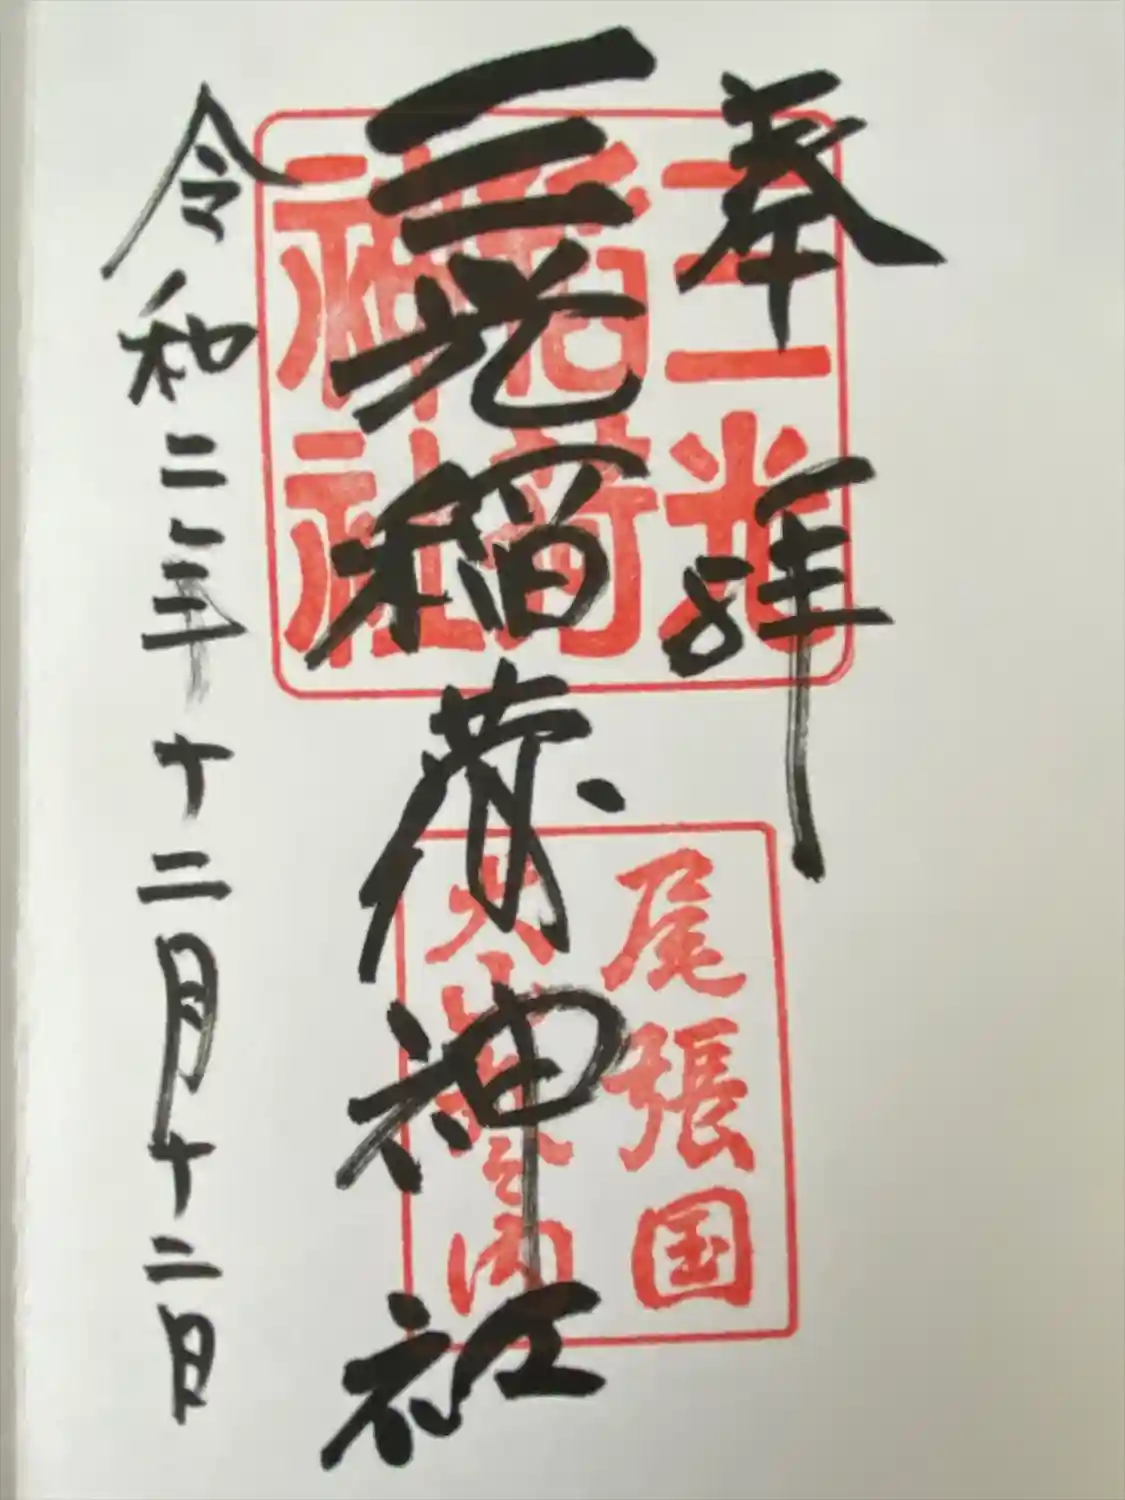 奉拝
三光稲荷神社
令和二年十二月十二日
三光
稲荷
神社
尾張国
犬山城之内